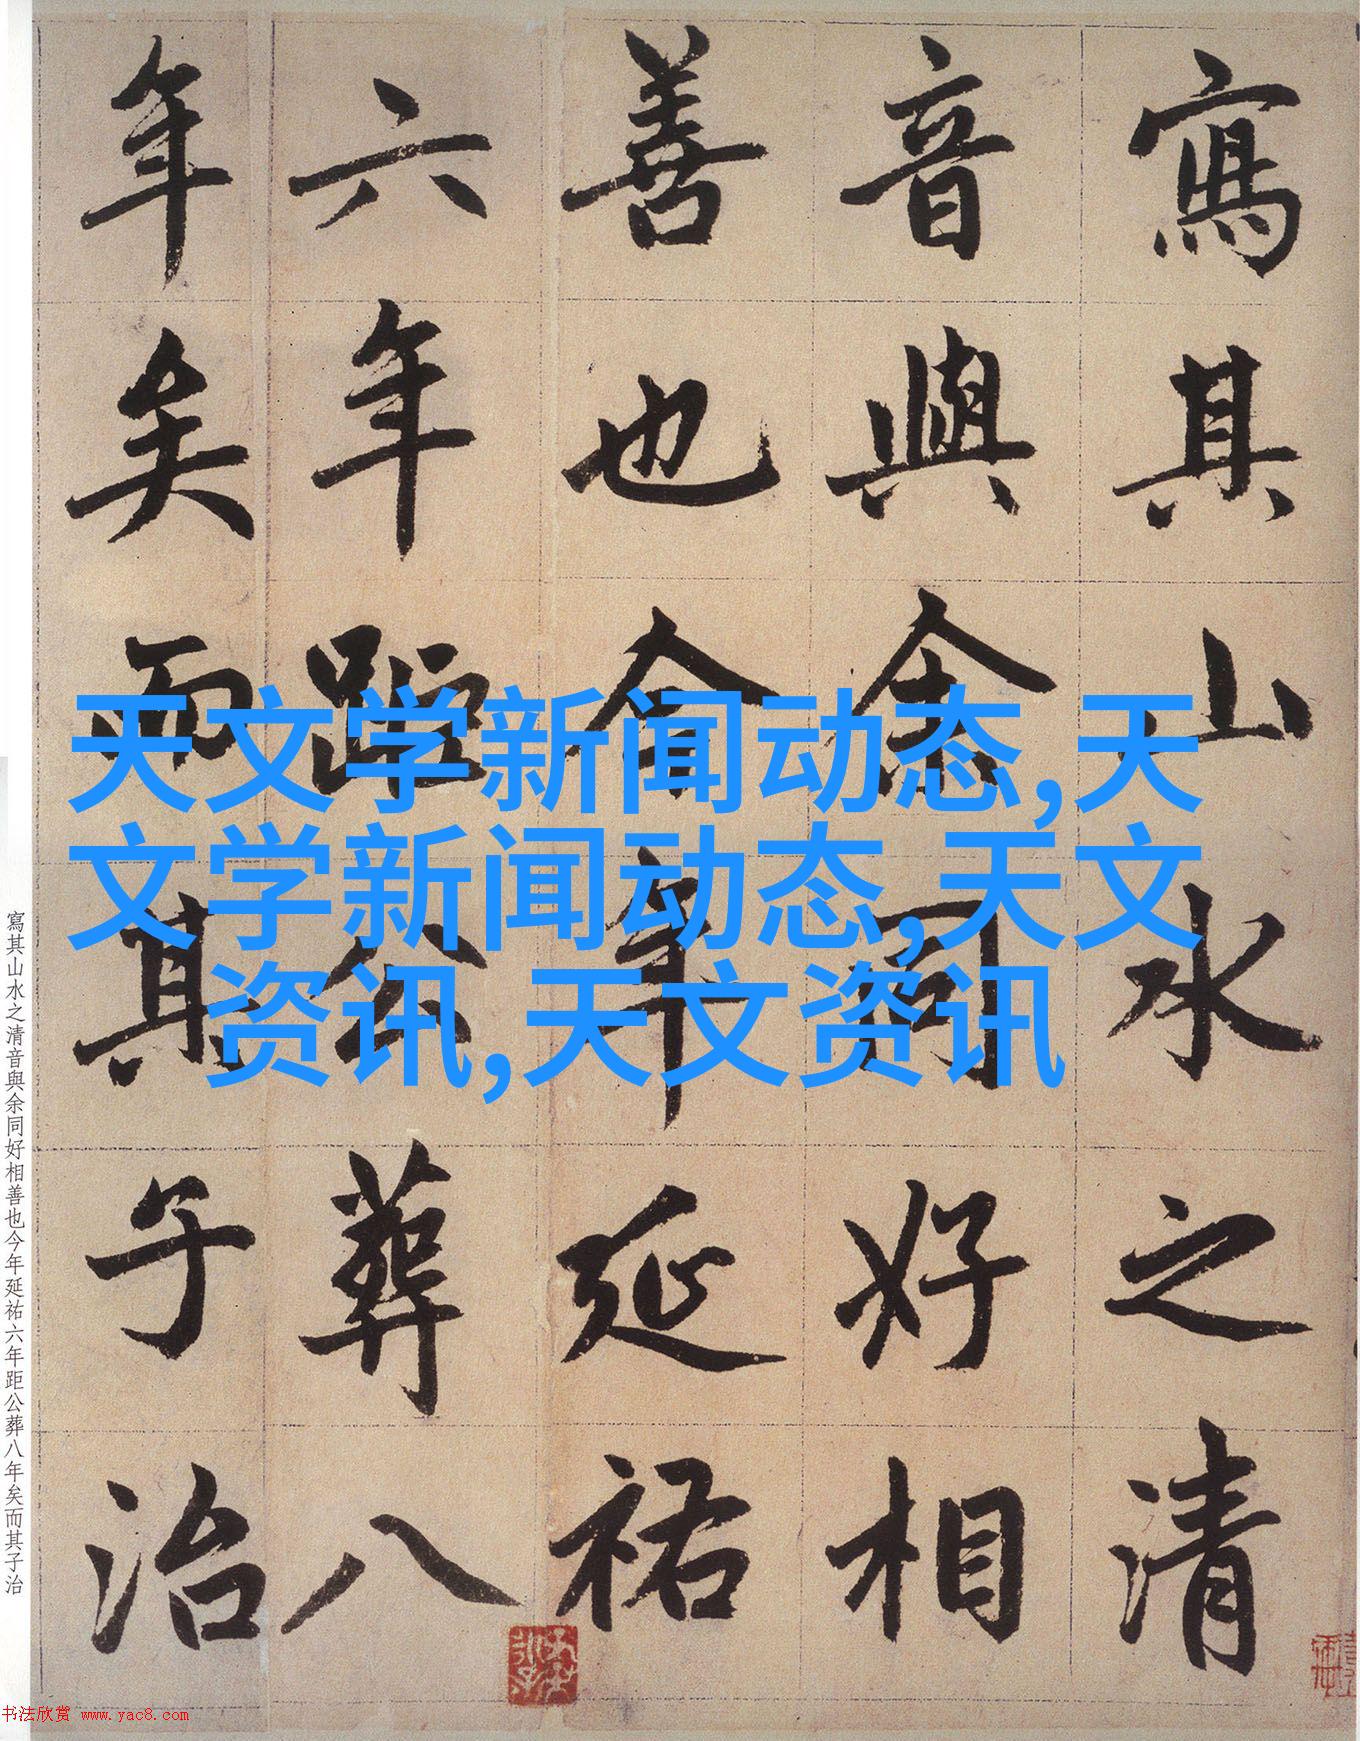 寫其山水之清
音與余同好相
善也今年延祐
六年距公葬八
年矣而其子治
天文学新闻动态,天
文学新闻动态,天文
资讯,天文资讯
寫其山水之清音與余同好相善也今年延祐六年距公葬八年矣而其子治
书法欣赏 www.yac8.com